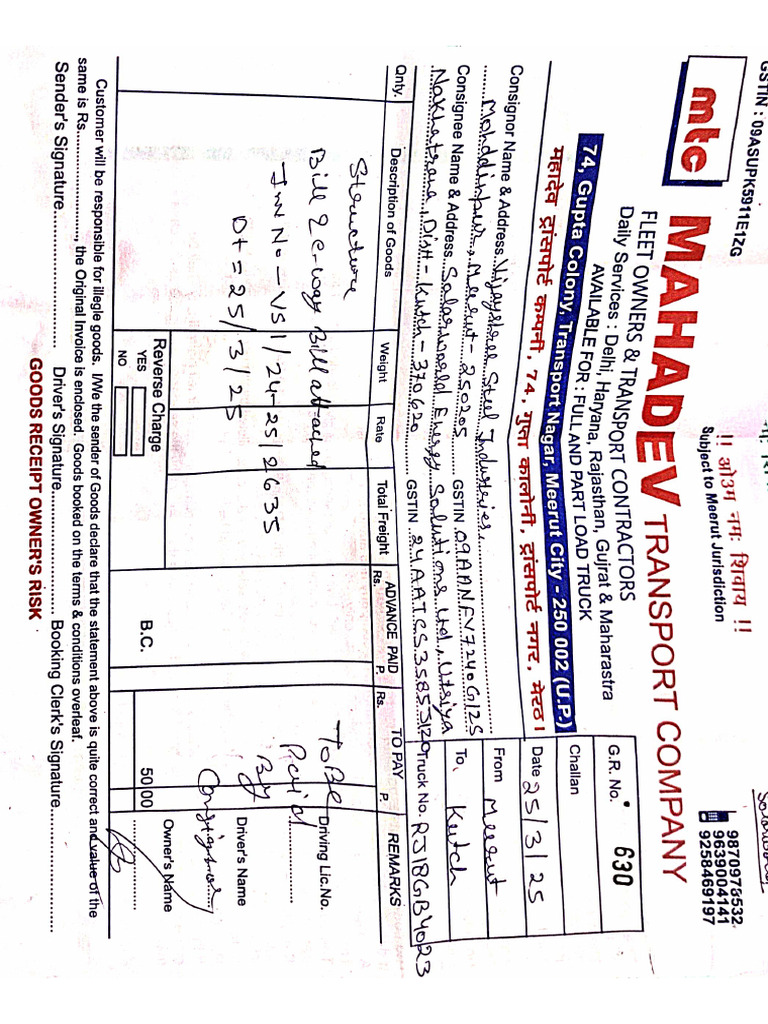 GSTIN : 09ASUPK5911E1ZG
!! ओउम नमः शिवाय !!
Subject to Meerut Jurisdiction
9870976532
9639004141
9258469197
mtc
MAHADEV TRANSPORT COMPANY
FLEET OWNERS & TRANSPORT CONTRACTORS
Daily Services : Delhi, Haryana, Rajasthan, Gujrat & Maharastra
AVAILABLE FOR : FULL AND PART LOAD TRUCK
74, Gupta Colony, Transport Nagar, Meerut City - 250 002 (U.P.)
महादेव ट्रांसपोर्ट कम्पनी, 74, गुप्ता कालोनी, ट्रांसपोर्ट नगर, मेरठ।
G.R. No. 630
Challan
Date 25/3/25
From Meerut
To Kutch
Truck No. RJ18GB4023
Consignor Name & Address Vijayshree Steel Industries,
Mohddinpur, Meerut - 250205 GSTIN 09AANFV7240G1ZS
Consignee Name & Address Solarworld Energy Solutions Ltd, Utsiya
Nakhatrana, Distt - Kutch - 370620 GSTIN 24AATCS3585J1ZO
Qnty. Description of Goods Weight Rate Total Freight ADVANCE PAID TO PAY REMARKS
Rs. P. Rs. P.
Structure
Bill & e-way Bill attached
Inv No - VS1/24-25/2635
Dt = 25/3/25
To Be
Paid
By
Consignor
Driving Lic.No.
Driver's Name
Owner's Name
Reverse Charge
YES
NO
B.C. 50 00
Customer will be responsible for illegle goods. I/We the sender of Goods declare that the statement above is quite correct and value of the
same is Rs. , the Original Invoice is enclosed. Goods booked on the terms & conditions overleaf.
Sender's Signature Driver's Signature Booking Clerk's Signature
GOODS RECEIPT OWNER'S RISK